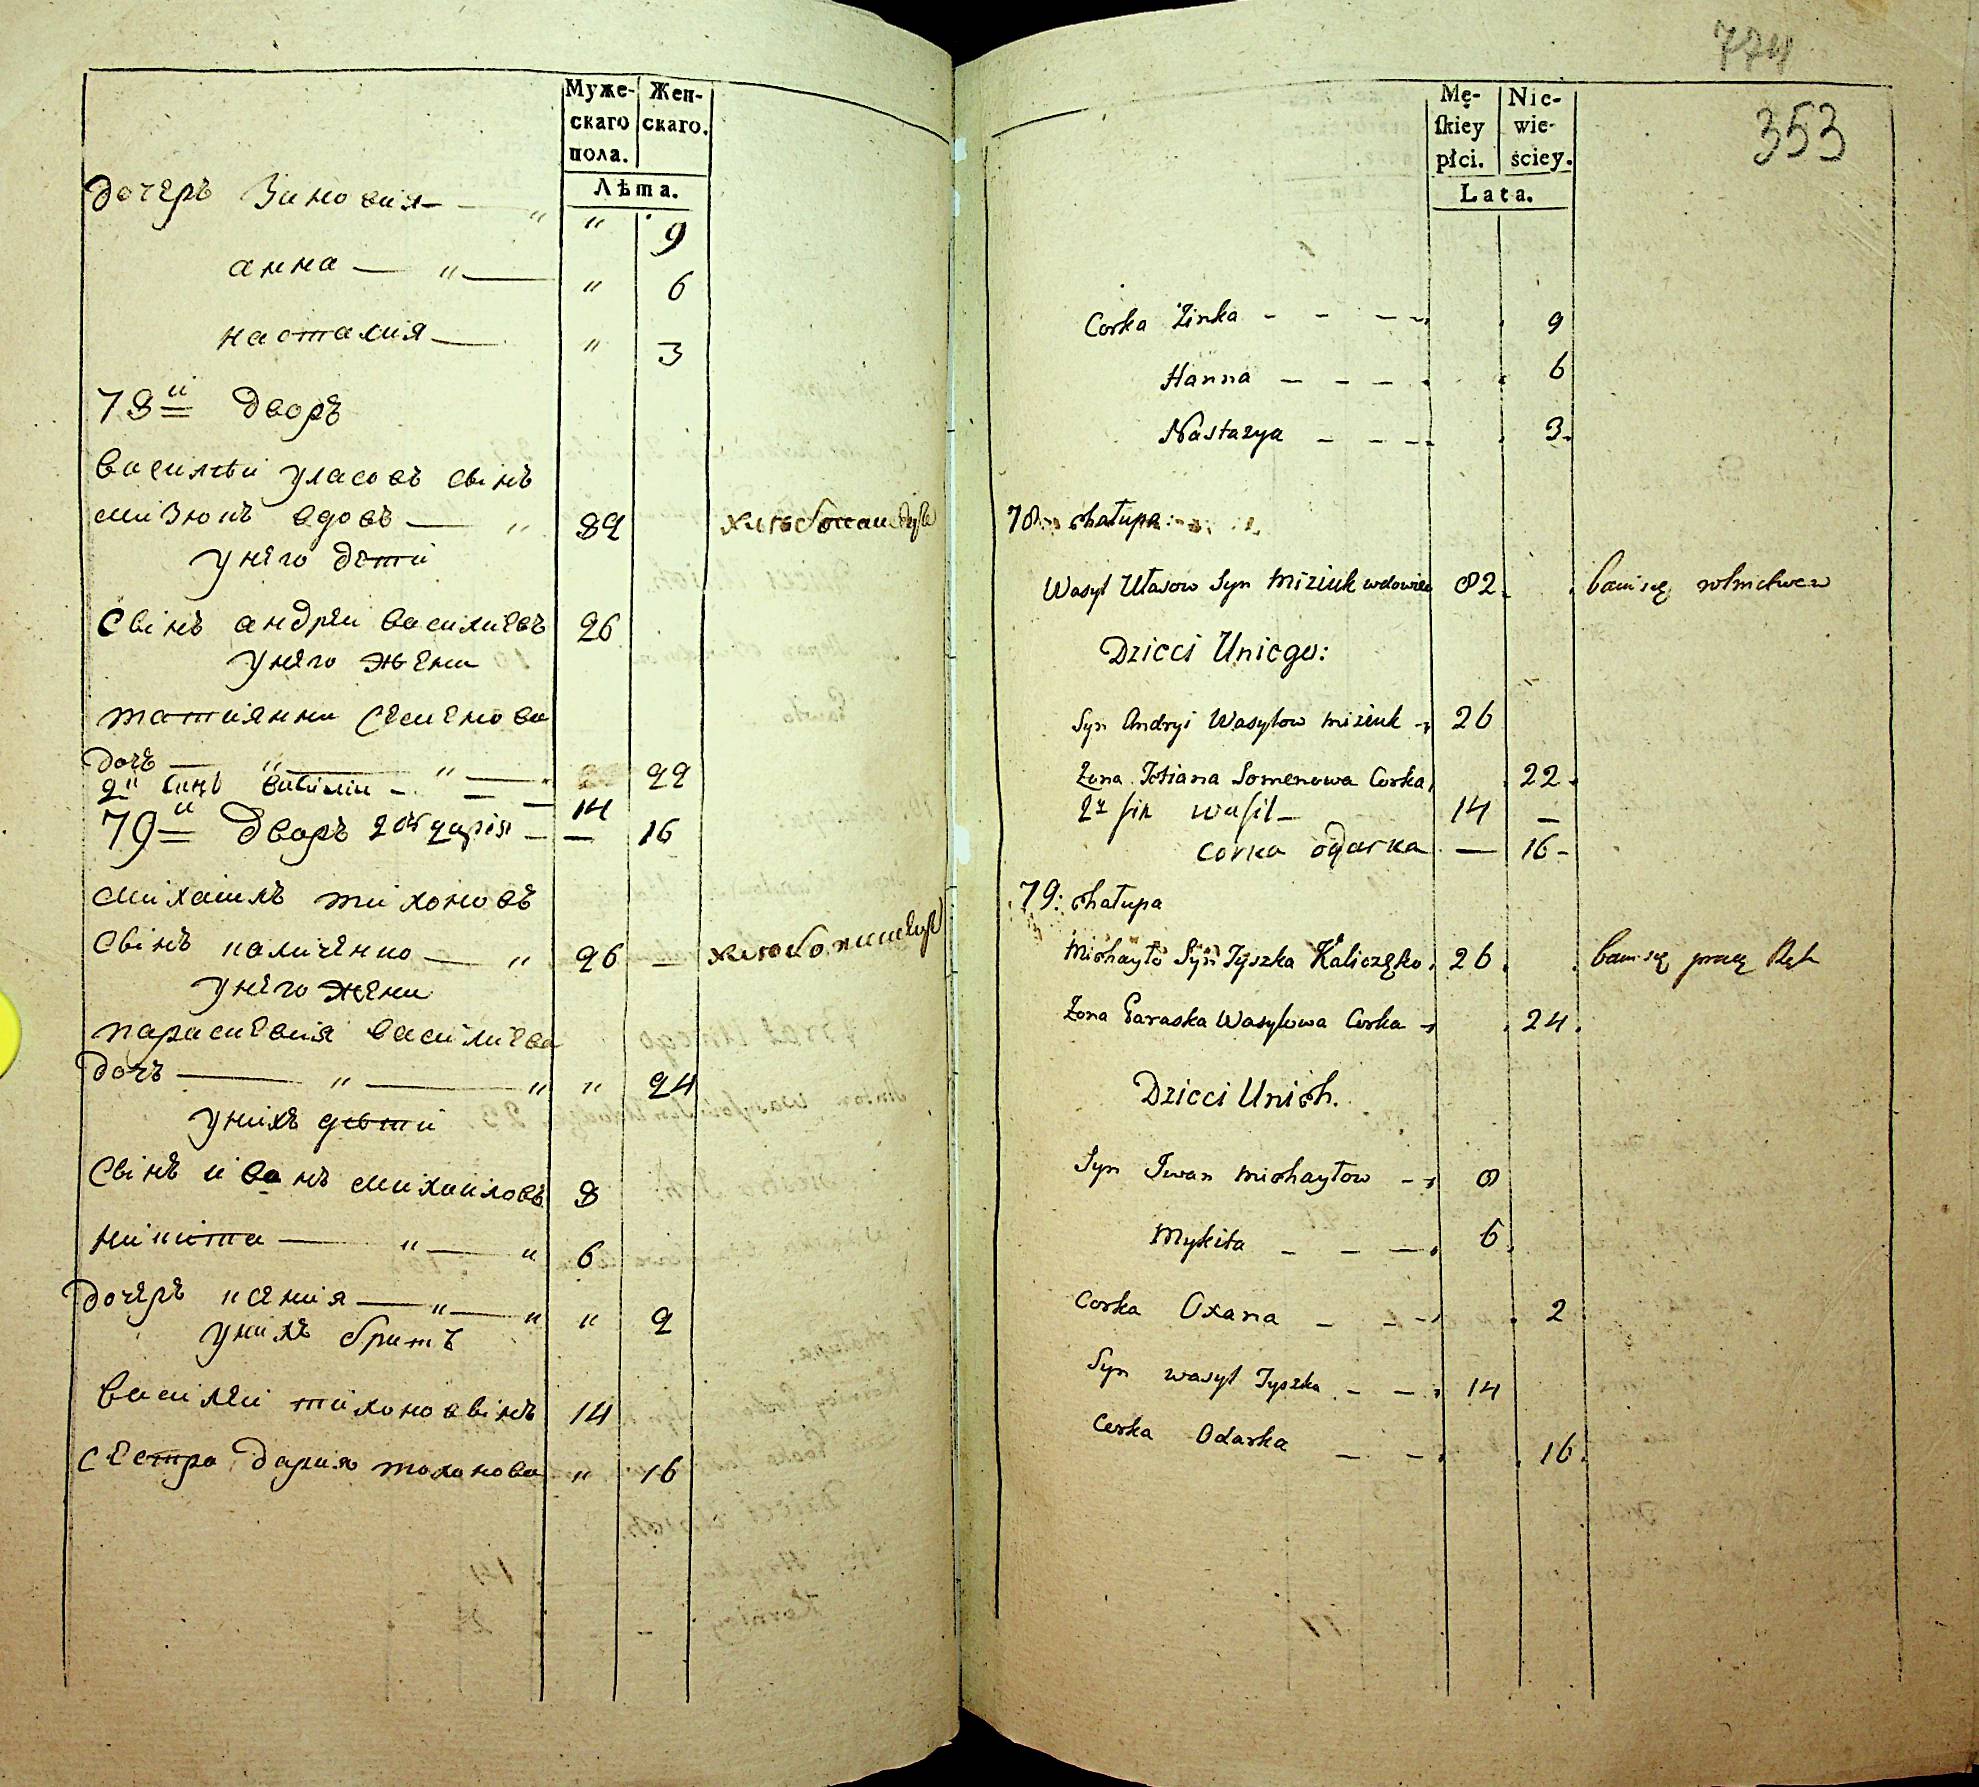 Муже-
скаго
пола.
Жен-
скаго.
Лѣта.
дочеръ Зиновия — " " 9
анна — " — " 6
настасия — " 3
78й дворъ
василѣй уласовъ свінъ
мизюкъ вдовъ — " 82
у него дети
свінъ андрей василиевъ 26
у него жена
татиянна семенова
дочъ — " — " — 22
2й синъ василии — — — 14
79й дворъ 2 дочъ дарія — — 16
михаилъ тихоновъ
свінъ каличенко — " 26 —
у него жена
параскевия василиева
дочъ — " — " " 24
у нихъ дѣти
свінъ иванъ михаиловъ 8
никита — " — " 6
дочеръ ксения — " — " " 2
у нихъ братъ
василей тихоновъ свінъ 14
сестра дария тихонова " 16
774
353
Mę-
skiey
płci.
Nie-
wie-
ściey.
Lata.
Corka Zinka - - - - 9
Hanna - - - - 6
Nastazya - - - - 3
78: chałupa:
Wasyl Ułasow Syn Miziuk wdowiec 82 bawi się rolnictwem
Dzieci Uniego:
Syn Andryi Wasylow miziuk - 26
Zona Tatiana Somenowa Corka, 22
2y sin wasil - 14 -
corka odarka - 16 -
79: chałupa
Michayło Syn Tyszka Kaliczęko. 26. bawi się pracą Rąk
Zona Paraska Wasylowa Corka - 24.
Dzieci Unich.
Syn Iwan michayłow - 8
Mykita - - - 6
Corka Oxana - - - 2
Syn wasyl Tyszka - - 14
Corka Odarka - - 16.